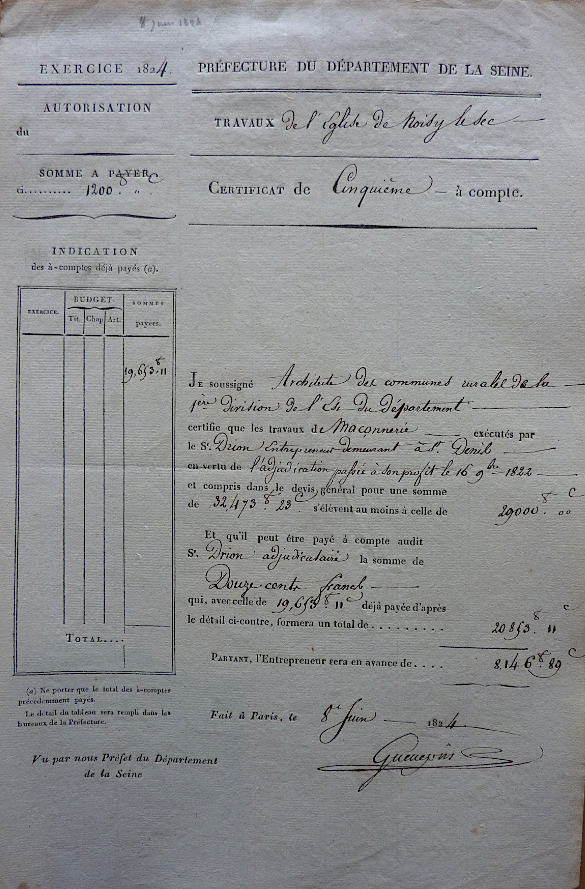 8 Juin 1824
EXERCICE 1824.
AUTORISATION
du
SOMME A PAYER
ci.......... 1200 f " c
INDICATION
des à-comptes déjà payés (a).
EXERCICE.
BUDGET
Tit.
Chap.
Art.
SOMMES
payées.
19,653 f 11
TOTAL....
(a) Ne porter que le total des à-comptes
précédemment payés.
Le détail du tableau sera rempli dans les
bureaux de la Préfecture.
Vu par nous Préfet du Département
de la Seine
PRÉFECTURE DU DÉPARTEMENT DE LA SEINE.
TRAVAUX de l'Eglise de Noisy le sec
CERTIFICAT de Cinquième — à compte.
JE soussigné Architecte des communes rurales de la
1ère Division de l'Est du département
certifie que les travaux de Maçonnerie exécutés par
le Sr. Drion Entrepreneur demeurant à St. Denis
en vertu de l'adjudication passée à son profit le 16 9bre 1822
et compris dans le devis général pour une somme
de 32,473 f 23 c s'élèvent au moins à celle de 29000 f oo c
Et qu'il peut être payé à compte audit
Sr. Drion adjudicataire la somme de
Douze cents francs
qui, avec celle de 19,653 f 11 c déjà payée d'après
le détail ci-contre, formera un total de ......... 20853 f 11 c
PARTANT, l'Entrepreneur sera en avance de .... 8,146 f 89 c
Fait à Paris, le 8 Juin 1824.